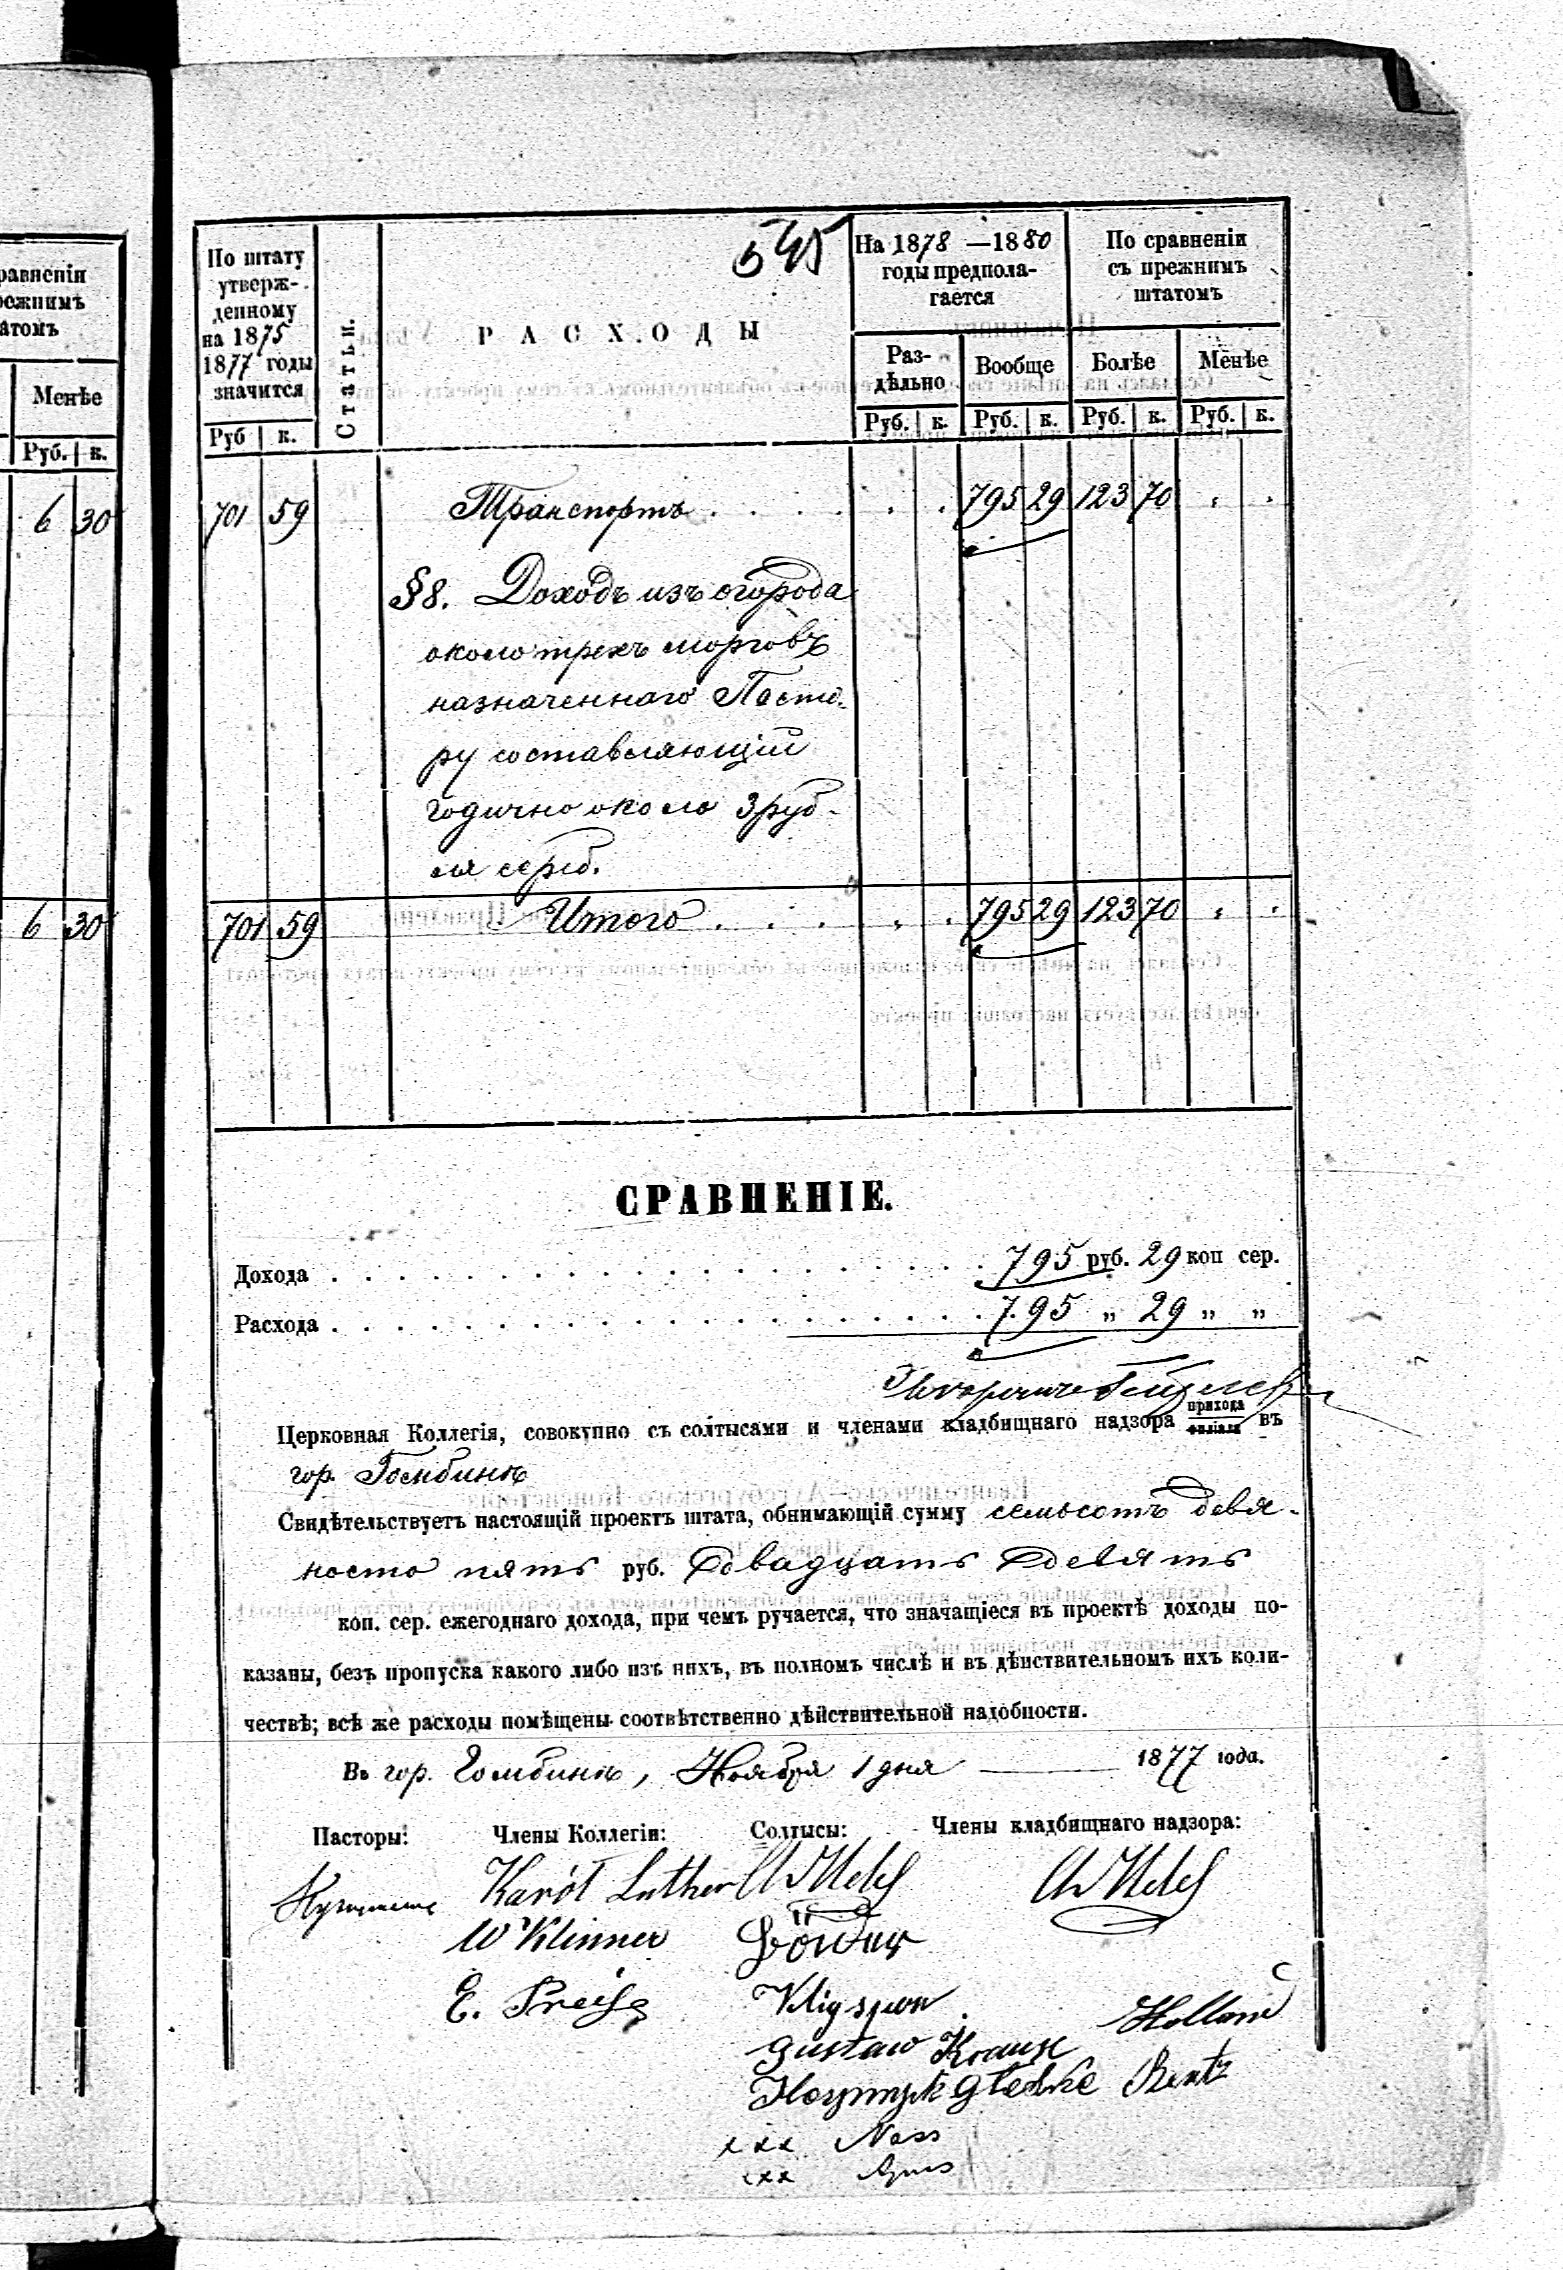 равненіи
режнимъ
атомъ
Менѣе
Руб. к.
6 30
6 30
545
По штату
утверж-
денному
на 1875
1877 годы
значится
Руб к.
Статьи.
РАСХОДЫ
На 1878 —1880
годы предпола-
гается
Раз-
дѣльно
Вообще
Руб. к. Руб. к.
По сравненіи
съ прежнимъ
штатомъ
Болѣе
Менѣе
Руб. к. Руб. к.
701 59 Транспортъ . . . . . . 795 29 123 70 . .
§8. Доходъ изъ огорода
около трехъ морговъ
назначеннаго Пасто-
ру составляющій
годично около 3 руб-
ля сереб.
701 59 Итого . . . . . . 795 29 123 70 . .
СРАВНЕНІЕ.
Дохода . . . . . . . . . . . . . . . . . . . . 795 руб. 29 коп сер.
Расхода . . . . . . . . . . . . . . . . . . . . 795 „ 29 „ „
Церковная Коллегія, совокупно съ солтысами и членами кладбищнаго надзора прихода филіала въ
гор. Гомбинѣ
Свидѣтельствуетъ настоящій проектъ штата, обнимающій сумму семьсотъ девя-
носто пять руб. двадцать девять
коп. сер. ежегоднаго дохода, при чемъ ручается, что значащіеся въ проектѣ доходы по-
казаны, безъ пропуска какого либо изъ нихъ, въ полномъ числѣ и въ дѣйствительномъ ихъ коли-
чествѣ; всѣ же расходы помѣщены соотвѣтственно дѣйствительной надобности.
Въ гор. Гомбинѣ, Ноября 1 дня 1877 года.
Пасторы: Члены Коллегіи: Солтысы: Члены кладбищнаго надзора:
Karól Luther
W Klinner
E. Preiss
Gustaw Krause
Holland
Rentz
xxx Nass
xxx